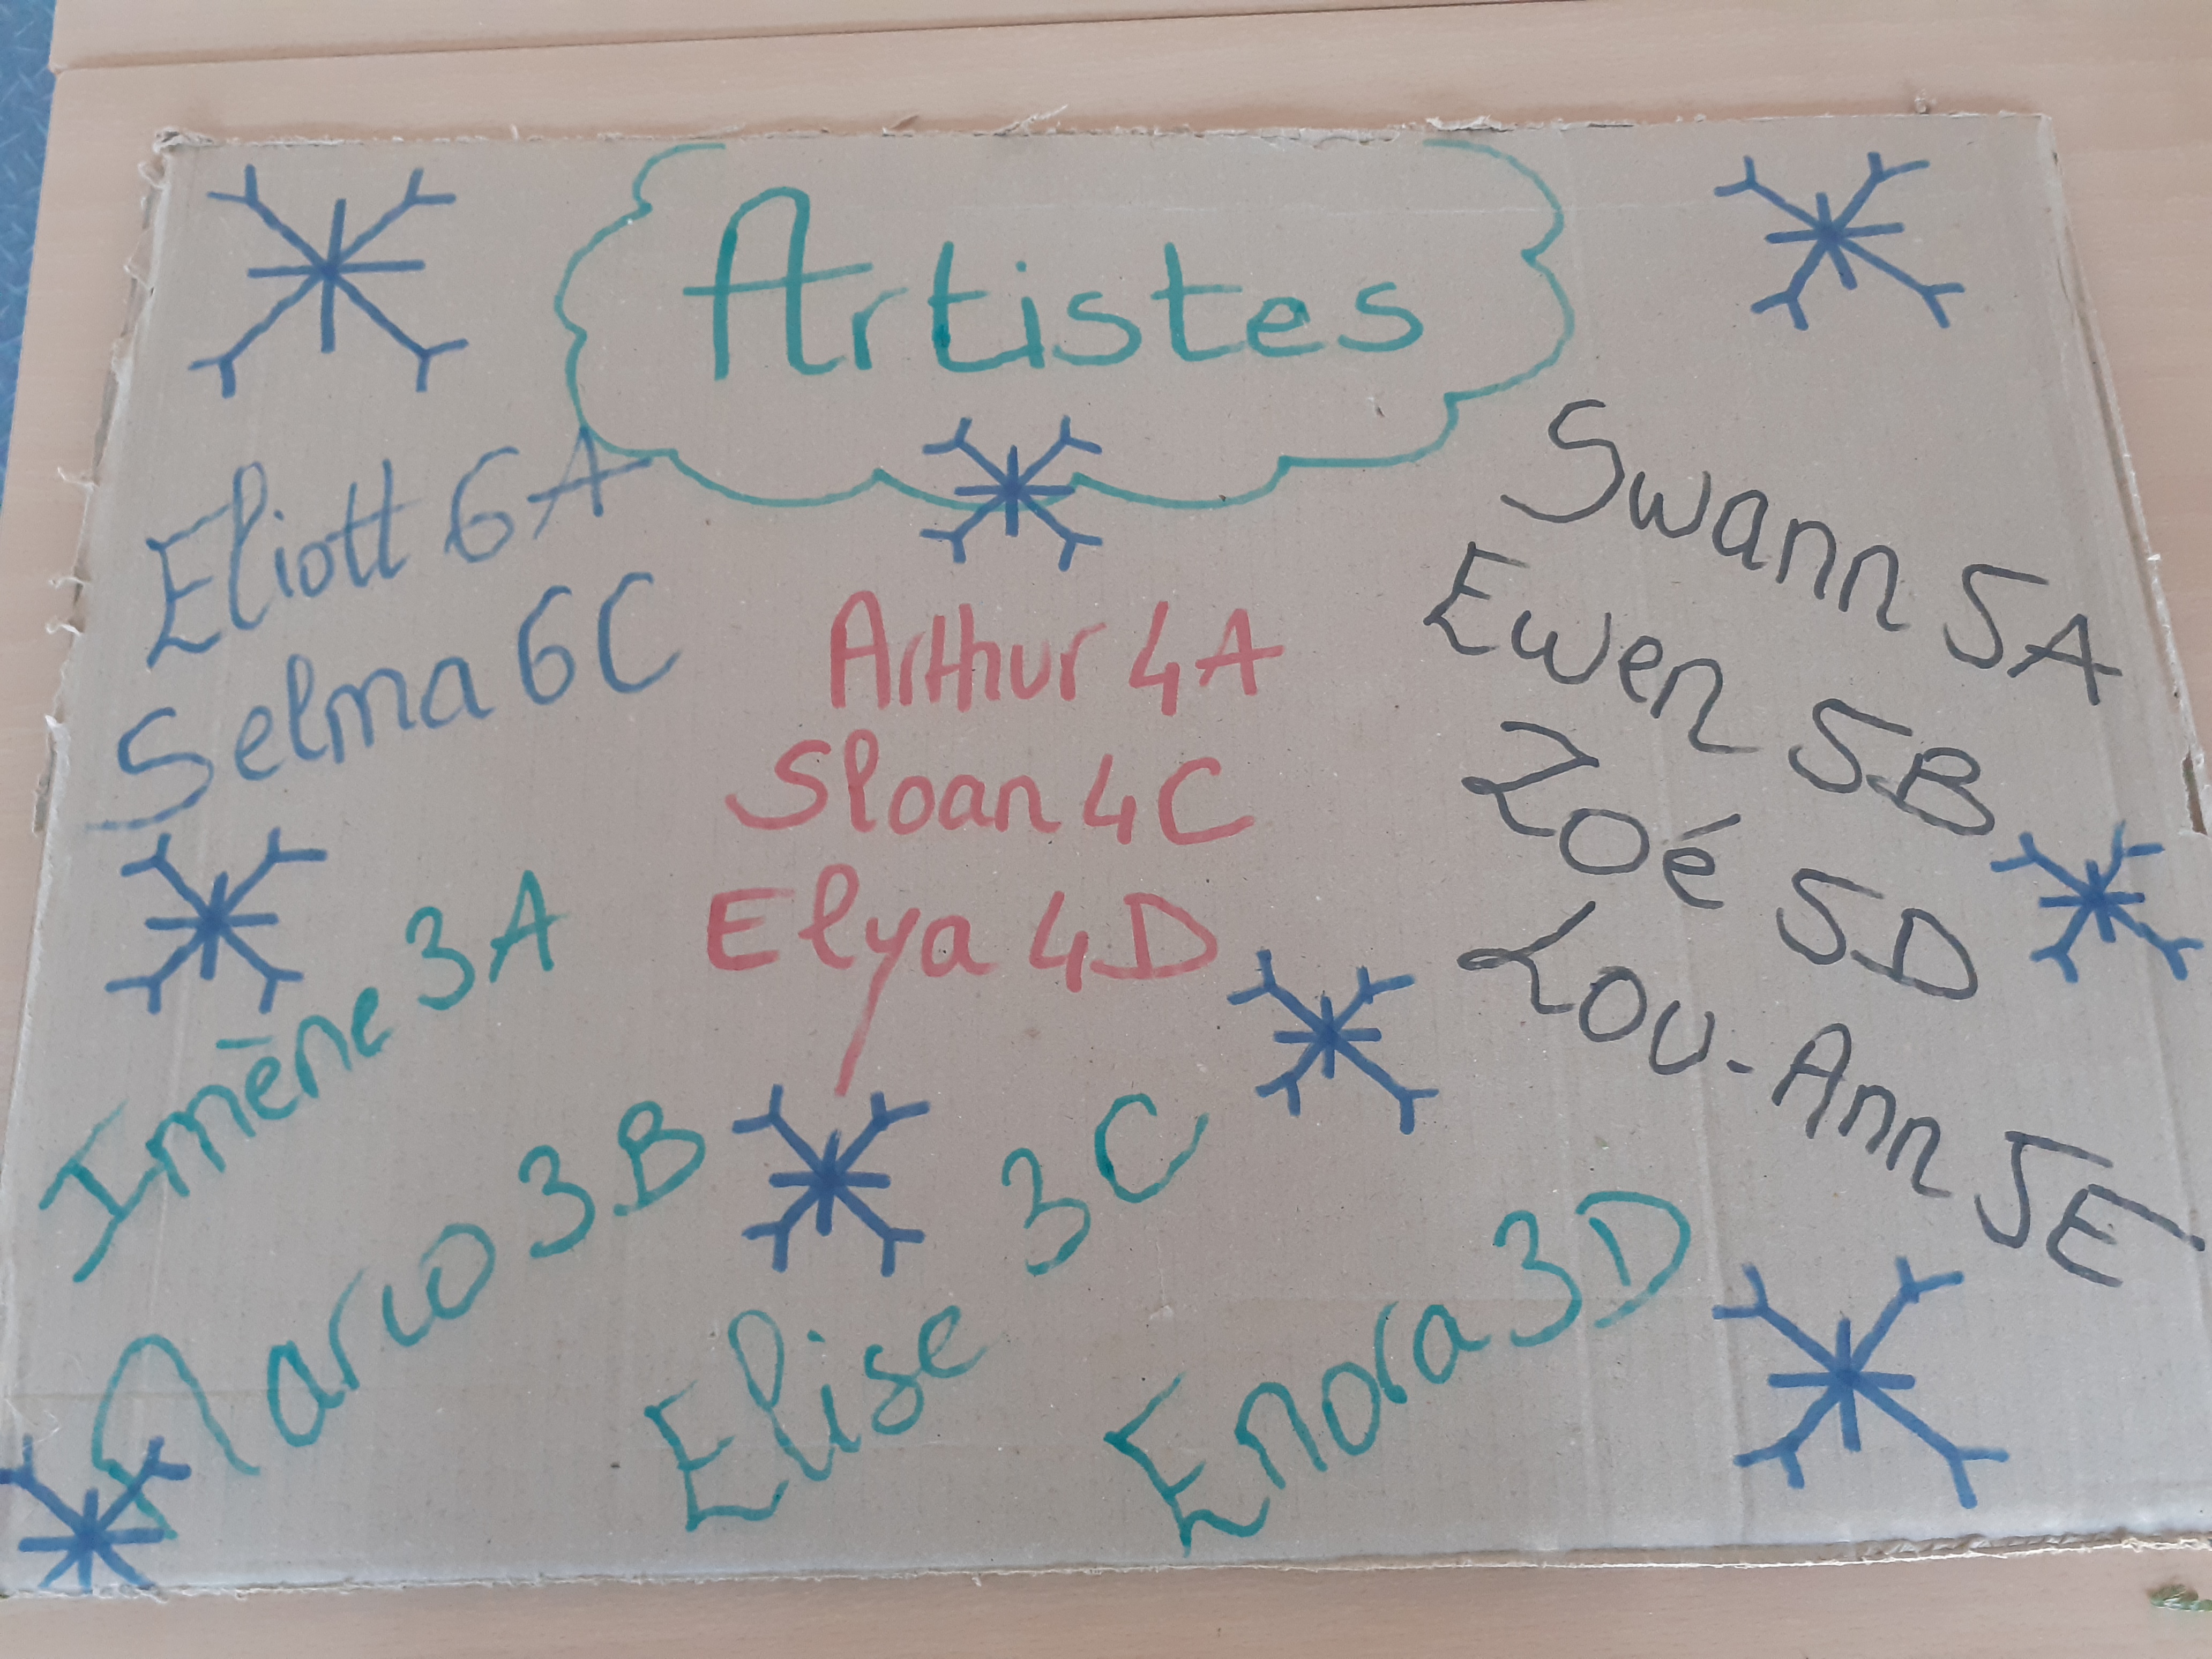 Artistes
Eliott 6A
Selma 6C
Arthur 4A
Sloan 4C
Elya 4D
Swann 5A
Ewen 5B
Zoé 5D
Lou-Ann 5E
Imène 3A
Marco 3B
Elise 3C
Enora 3D